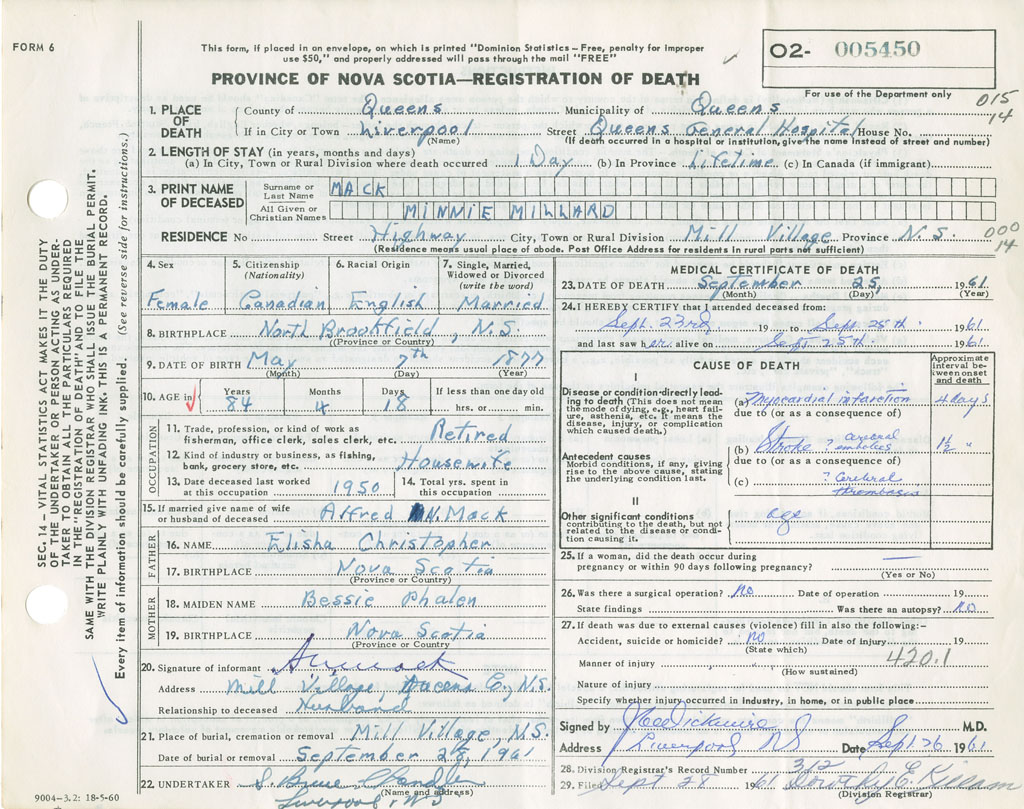 FORM 6
This form, if placed in an envelope, on which is printed "Dominion Statistics—Free, penalty for improper
use $50," and properly addressed will pass through the mail "FREE"
O2- 005450
PROVINCE OF NOVA SCOTIA—REGISTRATION OF DEATH
For use of the Department only
015
14
1. PLACE OF DEATH County of Queens Municipality of Queens
If in City or Town Liverpool Street Queens General Hospital House No.
(Name) (If death occurred in a hospital or institution, give the name instead of street and number)
2. LENGTH OF STAY (in years, months and days)
(a) In City, Town or Rural Division where death occurred 1 Day (b) In Province Lifetime (c) In Canada (if immigrant)
3. PRINT NAME OF DECEASED Surname or Last Name MACK
All Given or Christian Names MINNIE MILLARD
RESIDENCE No Street Highway City, Town or Rural Division Mill Village Province N.S.
000
14
(Residence means usual place of abode. Post Office Address for residents in rural parts not sufficient)
4. Sex 5. Citizenship (Nationality) 6. Racial Origin 7. Single, Married, Widowed or Divorced (write the word)
Female Canadian English Married
8. BIRTHPLACE North Brookfield, N.S.
(Province or Country)
9. DATE OF BIRTH May 7th 1877
(Month) (Day) (Year)
10. AGE in Years Months Days If less than one day old
84 4 18 hrs. or min.
OCCUPATION
11. Trade, profession, or kind of work as
fisherman, office clerk, sales clerk, etc. Retired
12. Kind of industry or business, as fishing,
bank, grocery store, etc. Housewife
13. Date deceased last worked at this occupation 1950 14. Total yrs. spent in this occupation
15. If married give name of wife
or husband of deceased Alfred N. Mack
FATHER
16. NAME Elisha Christopher
17. BIRTHPLACE Nova Scotia
(Province or Country)
MOTHER
18. MAIDEN NAME Bessie Phalen
19. BIRTHPLACE Nova Scotia
(Province or Country)
20. Signature of informant Mack
Address Mill Village, Queens C., N.S.
Relationship to deceased Husband
21. Place of burial, cremation or removal Mill Village, N.S.
Date of burial or removal September 28, 1961
22. UNDERTAKER S. Bruce Chandler
(Name and address)
Liverpool, N.S.
9004-3.2: 18-5-60
MEDICAL CERTIFICATE OF DEATH
23. DATE OF DEATH September 25, 1961
(Month) (Day) (Year)
24. I HEREBY CERTIFY that I attended deceased from:
Sept. 23rd 19 to Sept. 25th 1961
and last saw her alive on Sept. 25th 1961
CAUSE OF DEATH
Approximate interval between onset and death
I
Disease or condition directly leading to death (This does not mean
the mode of dying, e.g., heart failure, asthenia, etc. It means the
disease, injury, or complication which caused death.)
(a) Myocardial infarction 4 days
due to (or as a consequence of)
Antecedent causes
Morbid conditions, if any, giving rise to the above cause, stating the underlying condition last.
(b) Stroke ? cerebral embolies 1½ "
due to (or as a consequence of)
(c) ? Cerebral thrombosis
II
Other significant conditions
contributing to the death, but not related to the disease or condition causing it.
age
25. If a woman, did the death occur during
pregnancy or within 90 days following pregnancy?
(Yes or No)
26. Was there a surgical operation? No Date of operation 19
State findings Was there an autopsy? No
27. If death was due to external causes (violence) fill in also the following:—
Accident, suicide or homicide? no Date of injury 19
(State which)
420.1
Manner of injury
(How sustained)
Nature of injury
Specify whether injury occurred in industry, in home, or in public place
Signed by Wickwire M.D.
Address Liverpool NS Date Sept. 26 1961
28. Division Registrar's Record Number 312
29. Filed Sept 28 1961 Dorothy E. Killam
(Division Registrar)
SEC. 14 — VITAL STATISTICS ACT MAKES IT THE DUTY
OF THE UNDERTAKER OR PERSON ACTING AS UNDERTAKER
TO OBTAIN ALL THE PARTICULARS REQUIRED
IN THE "REGISTRATION OF DEATH" AND TO FILE THE
SAME WITH THE DIVISION REGISTRAR WHO SHALL ISSUE THE BURIAL PERMIT.
WRITE PLAINLY WITH UNFADING INK. THIS IS A PERMANENT RECORD.
Every item of information should be carefully supplied. (See reverse side for instructions.)